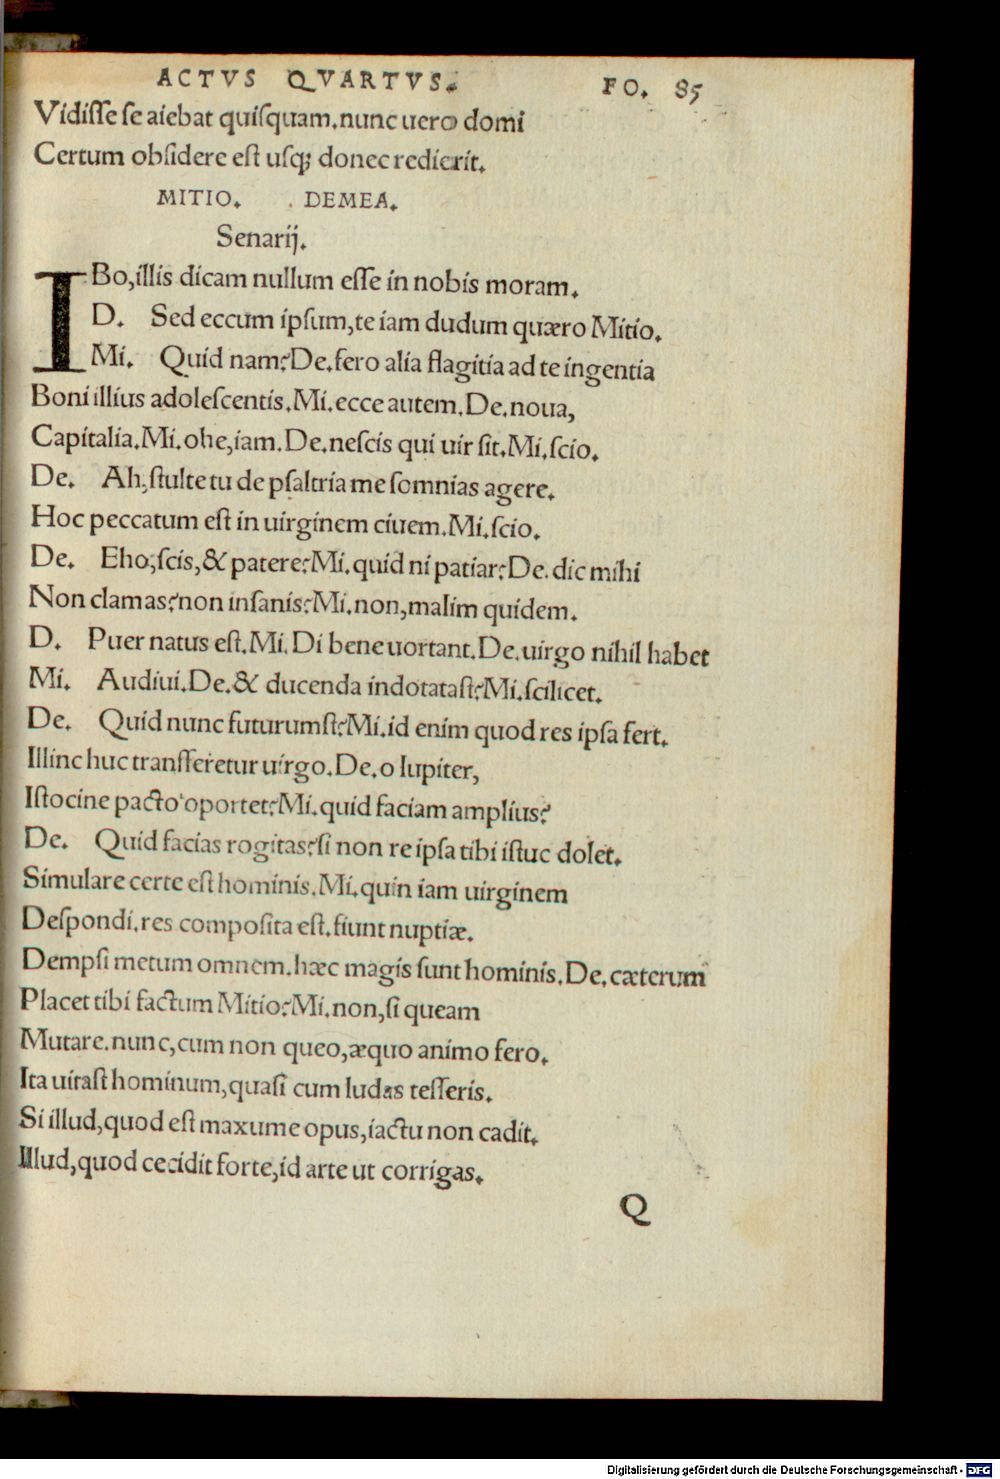 ACTVS QVARTVS. FO. 85
Vidiſſe ſe aiebat quiſquam.nunc uero domi
Certum obſidere eſt uſq; donec redierit.
MITIO. DEMEA.
Senarij.
IBo,illis dicam nullum eſſe in nobis moram.
D. Sed eccum ipſum,te iam dudum quæro Mitio.
Mi. Quid nam?De.fero alia flagitia ad te ingentia
Boni illius adoleſcentis.Mi.ecce autem.De.noua,
Capitalia.Mi.ohe,iam.De.neſcis qui uir ſit.Mi.ſcio.
De. Ah,ſtulte tu de pſaltria me ſomnias agere.
Hoc peccatum eſt in uirginem ciuem.Mi.ſcio.
De. Eho,ſcis,& patere?Mi.quid ni patiar?De.dic mihi
Non clamas?non inſanis?Mi.non,malim quidem.
D. Puer natus eſt.Mi.Di bene uortant.De.uirgo nihil habet
Mi. Audiui.De.& ducenda indotataſt?Mi.ſcilicet.
De. Quid nunc futurumſt?Mi.id enim quod res ipſa fert.
Illinc huc tranſferetur uirgo.De.o Iupiter,
Iſtocine pacto oportet?Mi.quid faciam amplius?
De. Quid facias rogitas?ſi non re ipſa tibi iſtuc dolet.
Simulare certe eſt hominis.Mi.quin iam uirginem
Deſpondi.res compoſita eſt.fiunt nuptiæ.
Dempſi metum omnem.hæc magis ſunt hominis.De.cæterum
Placet tibi factum Mitio?Mi.non,ſi queam
Mutare.nunc,cum non queo,æquo animo fero.
Ita uitaſt hominum,quaſi cum ludas teſſeris.
Si illud,quod eſt maxume opus,iactu non cadit.
Illud,quod cecidit forte,id arte ut corrigas.
Q
Digitalisierung gefördert durch die Deutsche Forschungsgemeinschaft - DFG